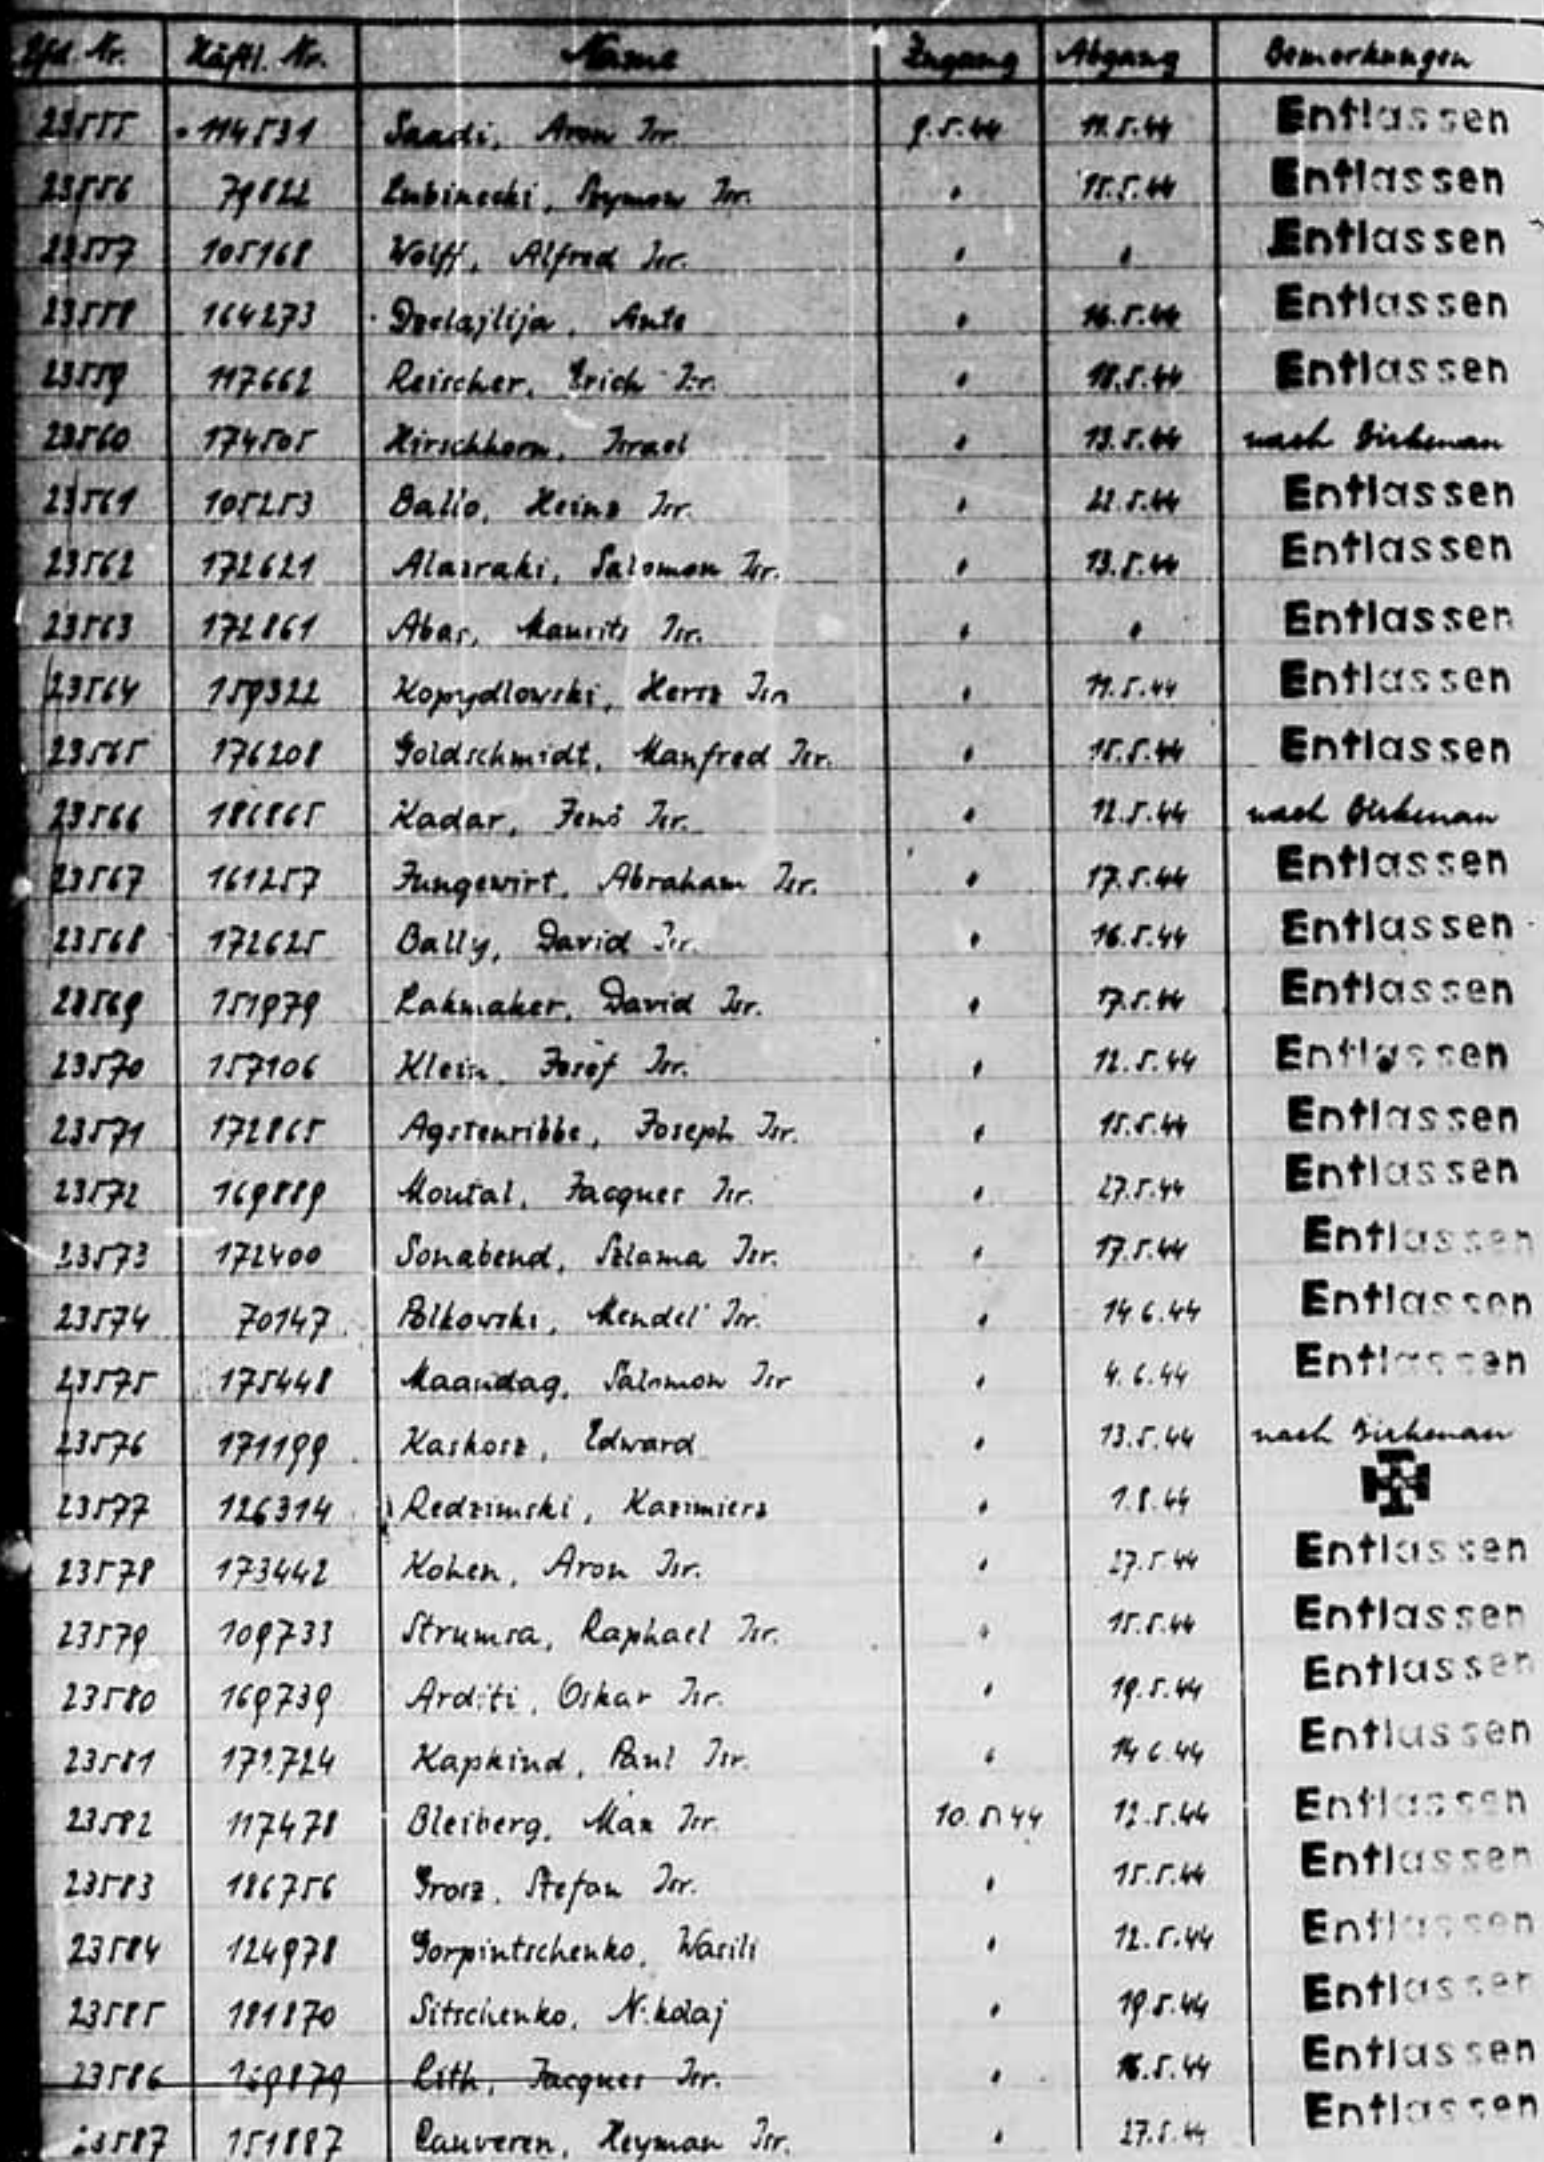 Lfd. Nr. Häftl. Nr. Name Zugang Abgang Bemerkungen
23555 114531 Saadi, Aron Isr. 9.5.44 11.5.44 Entlassen
23556 79822 Lubinecki, Szymon Isr. " 15.5.44 Entlassen
23557 105168 Wolff, Alfred Isr. " " Entlassen
23558 164273 Dzelajlija, Ante " 16.5.44 Entlassen
23559 117662 Reischer, Erich Isr. " 18.5.44 Entlassen
23560 174505 Hirschhorn, Israel " 13.5.44 nach Birkenau
23561 105253 Ballo, Heinz Isr. " 22.5.44 Entlassen
23562 172621 Alasraki, Salomon Isr. " 13.5.44 Entlassen
23563 172861 Abas, Maurits Isr. " " Entlassen
23564 159322 Kopydlowski, Hersz Isr. " 11.5.44 Entlassen
23565 176208 Goldschmidt, Manfred Isr. " 15.5.44 Entlassen
23566 186865 Kadar, Jenö Isr. " 12.5.44 nach Birkenau
23567 161257 Jungewirt, Abraham Isr. " 17.5.44 Entlassen
23568 172625 Bally, David Isr. " 16.5.44 Entlassen
23569 151979 Lakmaker, David Isr. " 17.5.44 Entlassen
23570 157106 Klein, Josef Isr. " 12.5.44 Entlassen
23571 172865 Agstenribbe, Joseph Isr. " 15.5.44 Entlassen
23572 169889 Moutal, Jacques Isr. " 27.5.44 Entlassen
23573 172400 Sonabend, Szlama Isr. " 17.5.44 Entlassen
23574 70147 Polkowski, Mendel Isr. " 14.6.44 Entlassen
23575 175448 Maandag, Salomon Isr " 4.6.44 Entlassen
23576 171199 Kaskosz, Edward " 13.5.44 nach Birkenau
23577 126314 Redzimski, Kazimierz " 1.8.44
23578 173442 Kohen, Aron Isr. " 27.5.44 Entlassen
23579 109733 Strumsa, Raphael Isr. " 15.5.44 Entlassen
23580 169739 Arditi, Oskar Isr. " 19.5.44 Entlassen
23581 172724 Kapkind, Paul Isr. " 14.6.44 Entlassen
23582 117478 Bleiberg, Max Isr. 10.5.44 12.5.44 Entlassen
23583 186756 Grosz, Stefan Isr. " 15.5.44 Entlassen
23584 124978 Gorpintschenko, Wasili " 12.5.44 Entlassen
23585 181870 Sitschenko, Nikolaj " 19.5.44 Entlassen
23586 169879 Lith, Jacques Isr. " 16.5.44 Entlassen
23587 151887 Cauveren, Heyman Isr. " 27.5.44 Entlassen